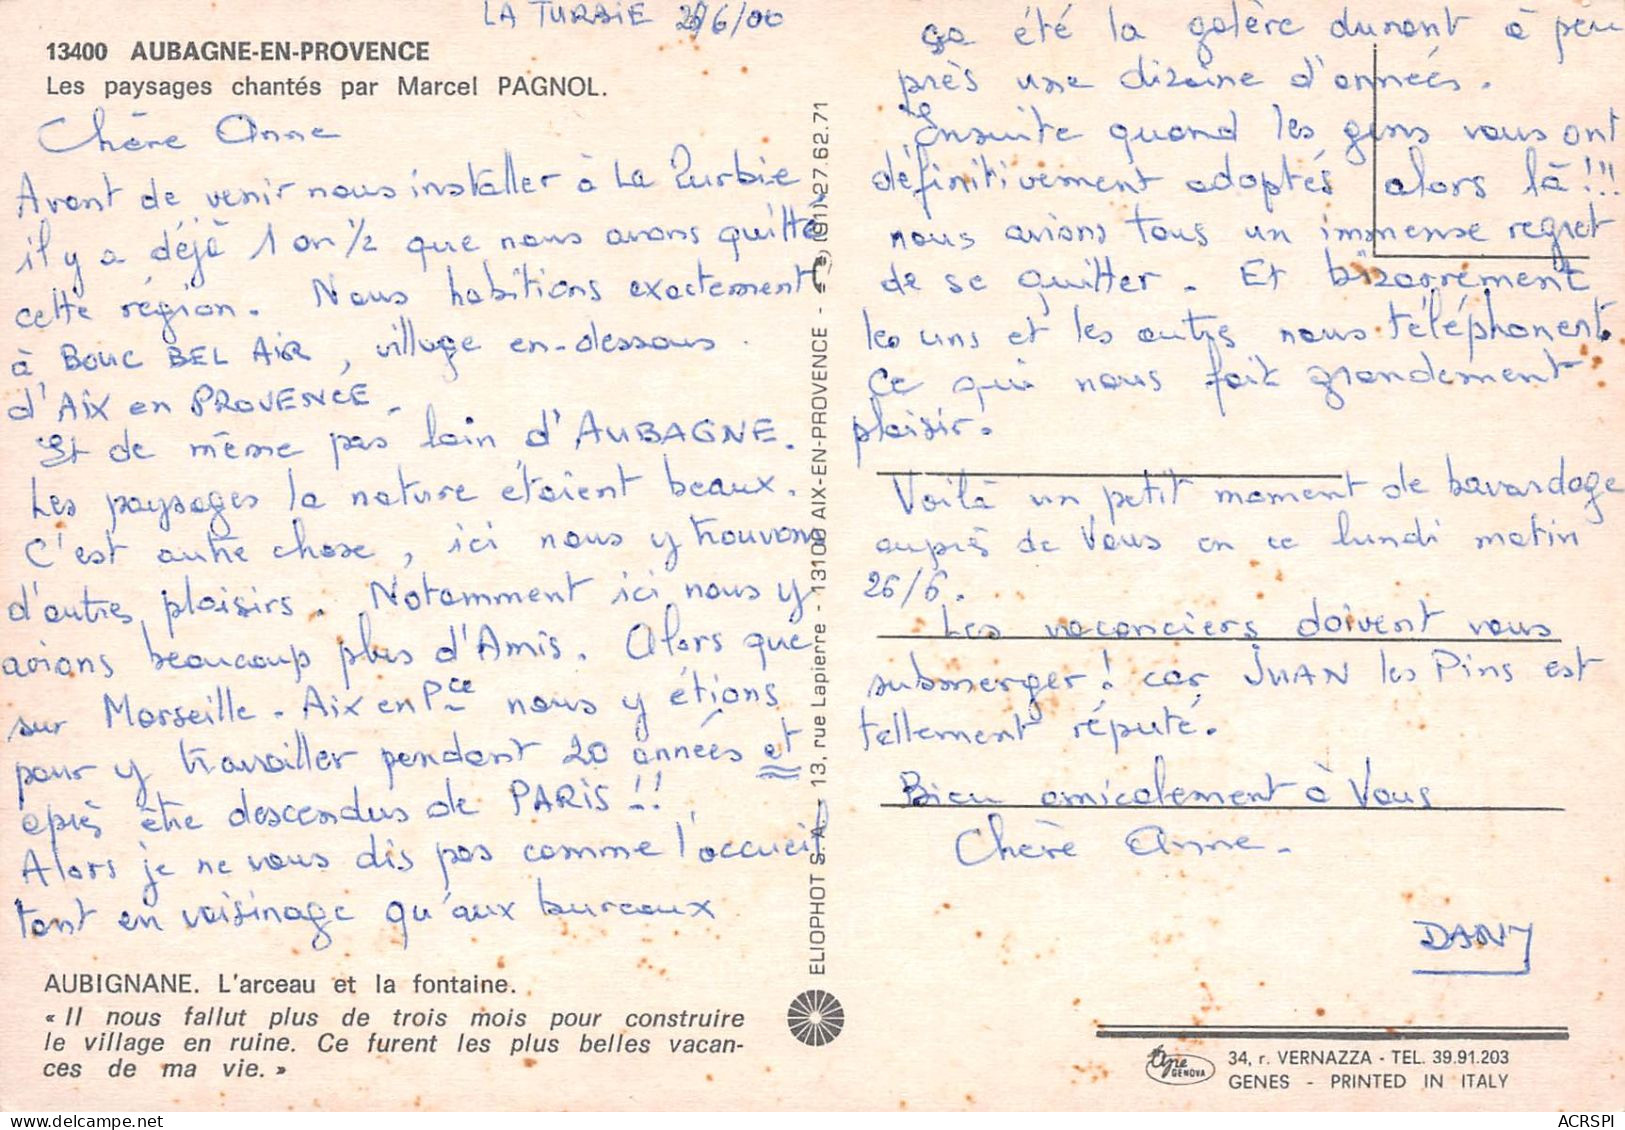 LA TURBIE 26/6/00
13400 AUBAGNE-EN-PROVENCE
Les paysages chantés par Marcel PAGNOL.
Chère Anne
Avant de venir nous installer à La Turbie
il y a déjà 1 an 1/2 que nous avons quitté
cette région. Nous habitions exactement
à BOUC BEL AIR, village en-dessous.
d'AIX en PROVENCE.
Et de même pas loin d'AUBAGNE.
Les paysages la nature étaient beaux.
C'est autre chose, ici nous y trouvons
d'autres plaisirs. Notamment ici nous y
avions beaucoup plus d'Amis. Alors que
sur Marseille - Aix en Pce nous y étions
pour y travailler pendant 20 années et
après être descendus de PARIS!!
Alors je ne vous dis pas comme l'accueil
tant en voisinage qu'aux bureaux
AUBIGNANE. L'arceau et la fontaine.
« Il nous fallut plus de trois mois pour construire
le village en ruine. Ce furent les plus belles vacan-
ces de ma vie. »
ELIOPHOT S.A. - 13, rue Lapierre - 13100 AIX-EN-PROVENCE - (91) 27.62.71
ça été la galère durant à peu
près une dizaine d'années.
Ensuite quand les gens vous ont
définitivement adoptés alors là!!!
nous avions tous un immense regret
de se quitter. Et bizarrément
les uns et les autres nous téléphonent.
Ce qui nous fait grandement
plaisir.
Voilà un petit moment de bavardage
auprès de Vous en ce lundi matin
26/6.
Les vacanciers doivent vous
submerger! car JUAN les Pins est
tellement réputé.
Bien amicalement à Vous
Chère Anne.
DANY
GENOVA
34, r. VERNAZZA - TEL. 39.91.203
GENES - PRINTED IN ITALY
ACRSPI